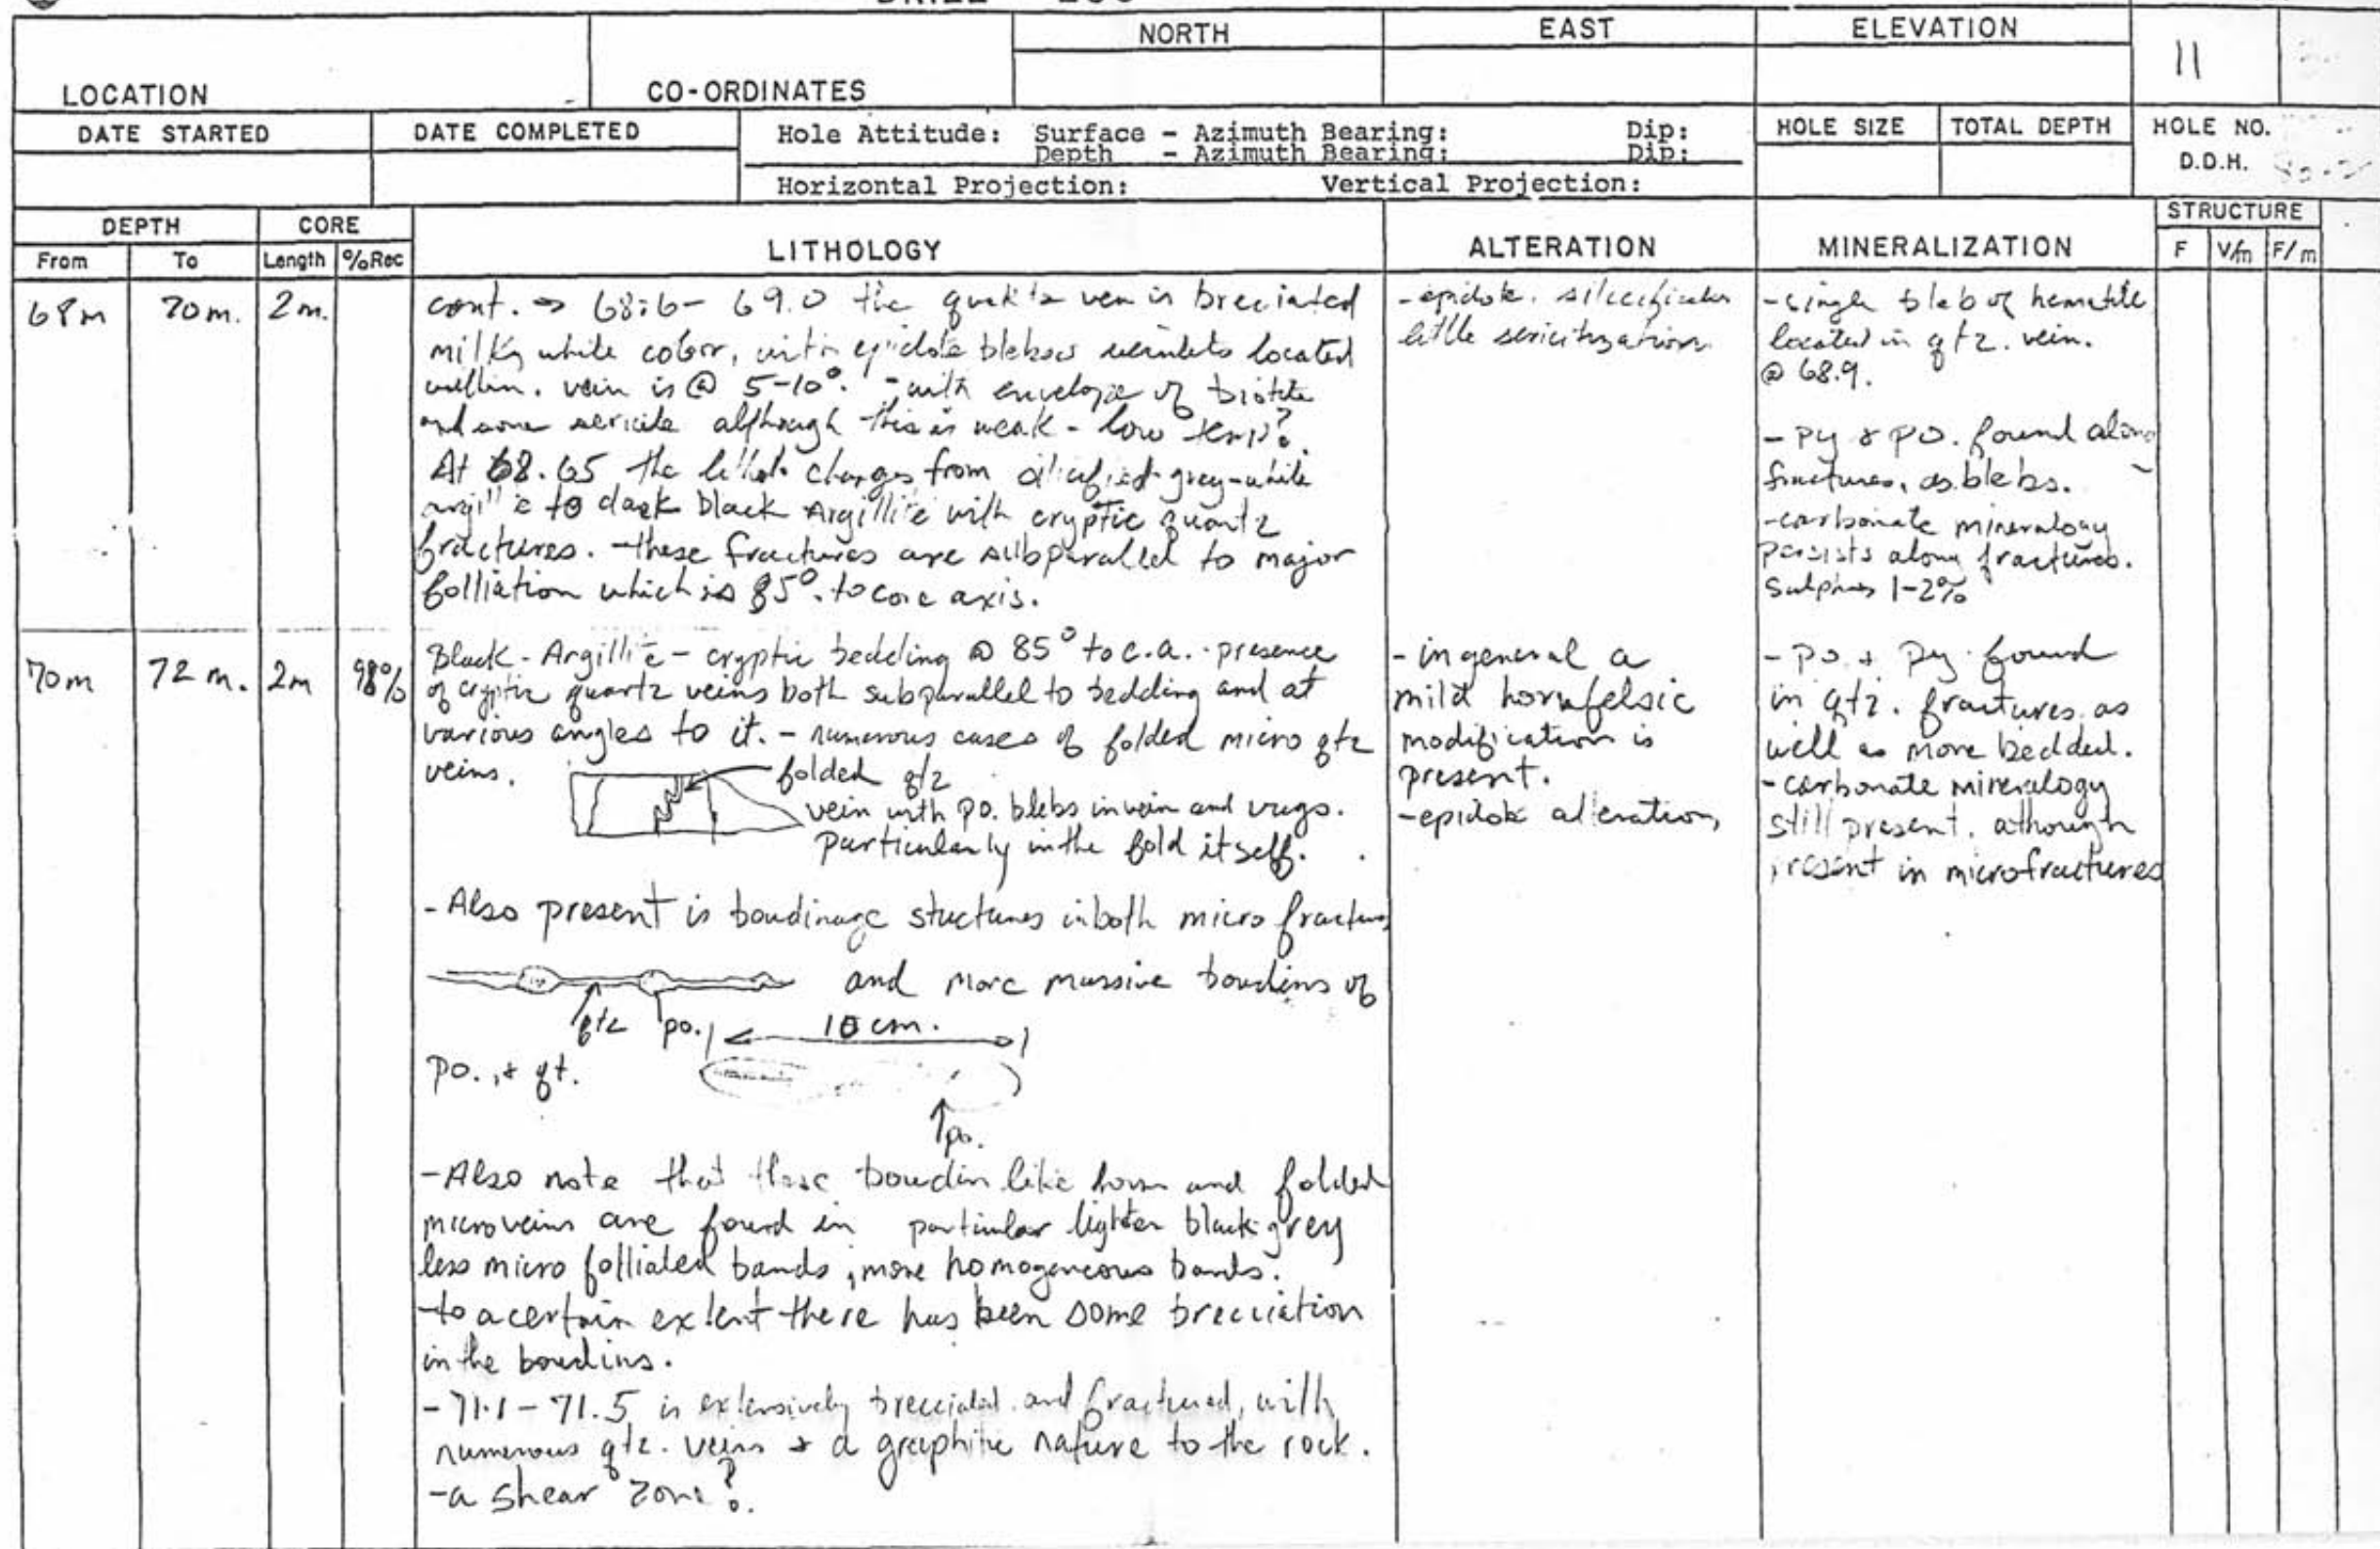 DRILL LOG
NORTH EAST ELEVATION
11
LOCATION CO-ORDINATES
DATE STARTED DATE COMPLETED Hole Attitude: Surface - Azimuth Bearing: Dip: HOLE SIZE TOTAL DEPTH HOLE NO.
Depth - Azimuth Bearing: Dip:
D.D.H.
Horizontal Projection: Vertical Projection:
DEPTH CORE LITHOLOGY ALTERATION MINERALIZATION STRUCTURE
From To Length %Rec F V/m F/m
68m 70m. 2m.
cont. → 68.6 - 69.0 the vein is breciated
milky white color, with epidote blebs veinlets located
within. vein is @ 5-10°. - with envelope of biotite
and some sericite although this is weak - low temp?.
At 68.65 the changes from grey-white
to dark black Argillite with cryptic quartz
fractures. - these fractures are subparallel to major
folliation which is 85°. to core axis.
- epidote.
little sericitization
- single bleb of hematite
located in qtz. vein.
@ 68.9.
- py & po. found along
fractures, as blebs.
- carbonate mineralogy
persists along fractures.
1-2%
70m 72m. 2m 98%
Black - Argillite - cryptic bedding @ 85° to c.a. - presence
of cryptic quartz veins both subparallel to bedding and at
various angles to it. - numerous cases of folded micro qtz
veins.
folded qtz
vein with po. blebs in vein and vugs.
particularly in the fold itself.
- Also present is boudinage stuctures in both micro fractures
and more massive boudins of
qtz po. 10 cm.
po., & qt.
po.
- Also note that these boudin like form and folded
microveins are found in particular lighter black-grey
less micro folliated bands, more homogeneous bands.
- to a certain extent there has been some brecciation
in the boudins.
- 71.1 - 71.5 is extensively brecciated and fractured, with
numerous qtz. veins & a graphitic nature to the rock.
- a shear zone?.
- in general a
mild hornfelsic
modification is
present.
- epidote alteration,
- po. & py. found
in qtz. fractures as
well as more bedded.
- carbonate mineralogy
still present. although
present in microfractures